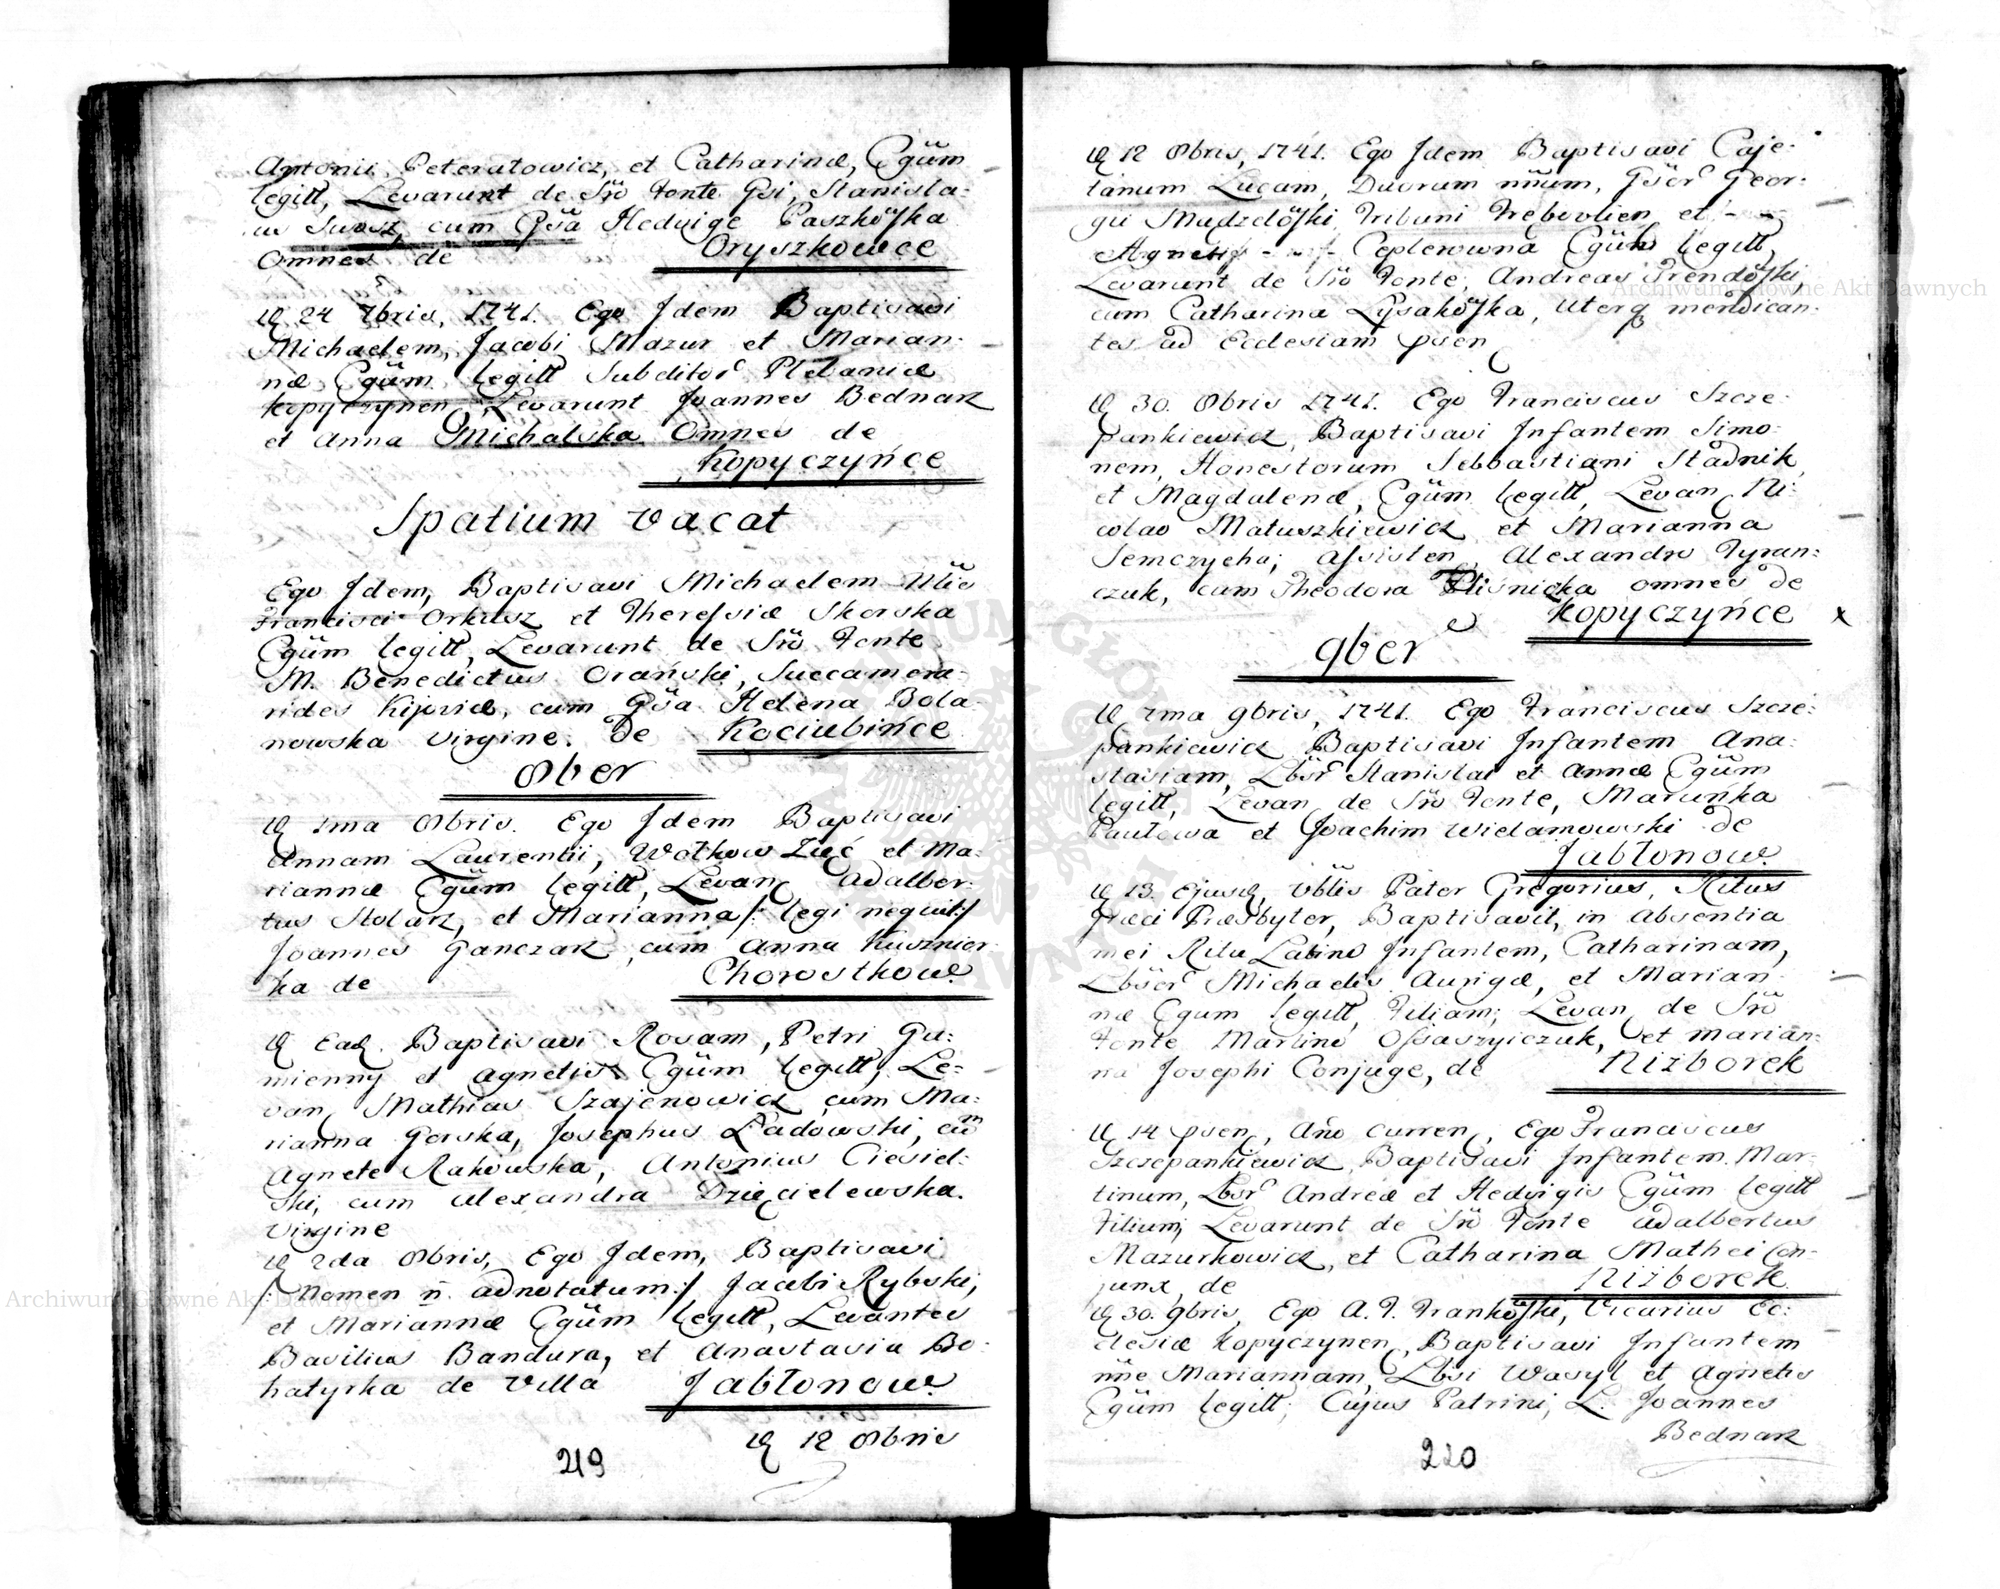 Antonii Peteratowicz, et Catharinæ, Cgüm
legitt, Levarunt de Sr̃o Fonte Gsi Stanisla-
us Susz, cum Gsa Hedvige Paszkowska
Omnes de Oryszkowce
24 7bris, 1741. Ego Idem Baptisavi
Michaelem, Jacobi Mazur et Marian-
næ Cgüm legitt Subditor Plebaniæ
Kopyczynen, Levarunt Joannes Bednarz
et Anna Michalska Omnes de
Kopyczyńce
Spatium vacat
Ego Idem, Baptisavi Michaelem
Francisci Orkusz et Theressiæ Skorska
Cgüm legitt, Levarunt de Sr̃o Fonte
M. Benedictus Orański, Succamera-
rides Kijoviæ, cum Gsa Helena Bola-
nowska virgine. de Kociubińce
8ber
1ma 8bris. Ego Idem Baptisavi
Annam Laurentii, Wołkow Zięć et Ma-
riannæ Cgüm legitt, Levan Adalber-
tus Stolarz, et Marianna /: legi nequit :/
Joannes Ganczarz cum Anna Kusznier-
ka de Chorostkow.
Ead. Baptisavi Rosam, Petri Gu-
mienny et Agnetis Cgüm legitt, Le-
van Mathias Szajenowicz cum Ma-
rianna Gorska, Josephus Ładowski, cum
Agnete Rakowska, Antonius Ciesiel-
ski, cum Alexandra Dzięcielewska.
Virgine
2da 8bris, Ego Idem, Baptisavi
/: Nomen n̄. adnotatum :/ Jacobi Rybski,
et Mariannæ Cgüm legitt, Levantes
Basilius Bandura, et Anastasia Bo-
hatyrka de Villa Jabłonow.
12 8bris
219
12 8bris, 1741. Ego Idem Baptisavi Caje-
tanum Lucam, Duorum nñum, Gsor Geor-
gii Tribuni Trebovlien et
Agnetis Ceplerowna Cgüm legitt,
Levarunt de Sr̃o Fonte, Andreas Trendowski,
cum Catharina Łysakowska, uterq mendican-
tes ad Ecclesiam psen
30. 8bris 1741. Ego Franciscus Szcze-
pankiewicz, Baptisavi Infantem Simo-
nem, Honestorum Sebbastiani Stadnik
et Magdalenæ, Cgüm legitt, Levan Ni-
colao Matuszkiewicz et Marianna
Semczycha; assisten, Alexandro Tyran-
czuk, cum Theodora Pliśnicka omnes de
Kopyczyńce x
9ber
7ma 9bris, 1741. Ego Franciscus Szcze-
pankiewicz Baptisavi Infantem Ana-
stasiam, Lbsr Stanislai et Annæ Cgüm
legitt, Levan de Sr̃o Fonte, Maruńka
Pautowa et Joachim Wielamowski de
Jabłonow.
13. Ejusd, vblis Pater Gregorius, Ritus
græci Præsbyter, Baptisavit, in absentia
mei Ritu Latino Infantem, Catharinam,
Lbsor Michaelis Aurigæ, et Marian-
næ Cgum legitt, Filiam; Levan de Sr̃o
Fonte Martino Ossaszyiczuk, et Marian-
na Josephi Conjuge, de Niżborek
14 psen, Año curren, Ego Franciscus
Szczepankiewicz Baptisavi Infantem Mar-
tinum, Lbsr Andreæ et Hedvigis Cgüm legitt
Filium; Levarunt de Sr̃o Fonte Adalbertus
Mazurkowicz, et Catharina Mathei Con-
junx, de Niżborek
30. 9bris, Ego A. F. Frankowski, Vicarius Ec-
clesiæ Kopyczynen, Baptisavi Infantem
nñe Mariannam, Lbsi Wasyl et Agnetis
Cgüm legitt; Cujus Patrini, L. Joannes
Bednarz
220
Archiwum Główne Akt Dawnych
Archiwum Główne Akt Dawnych